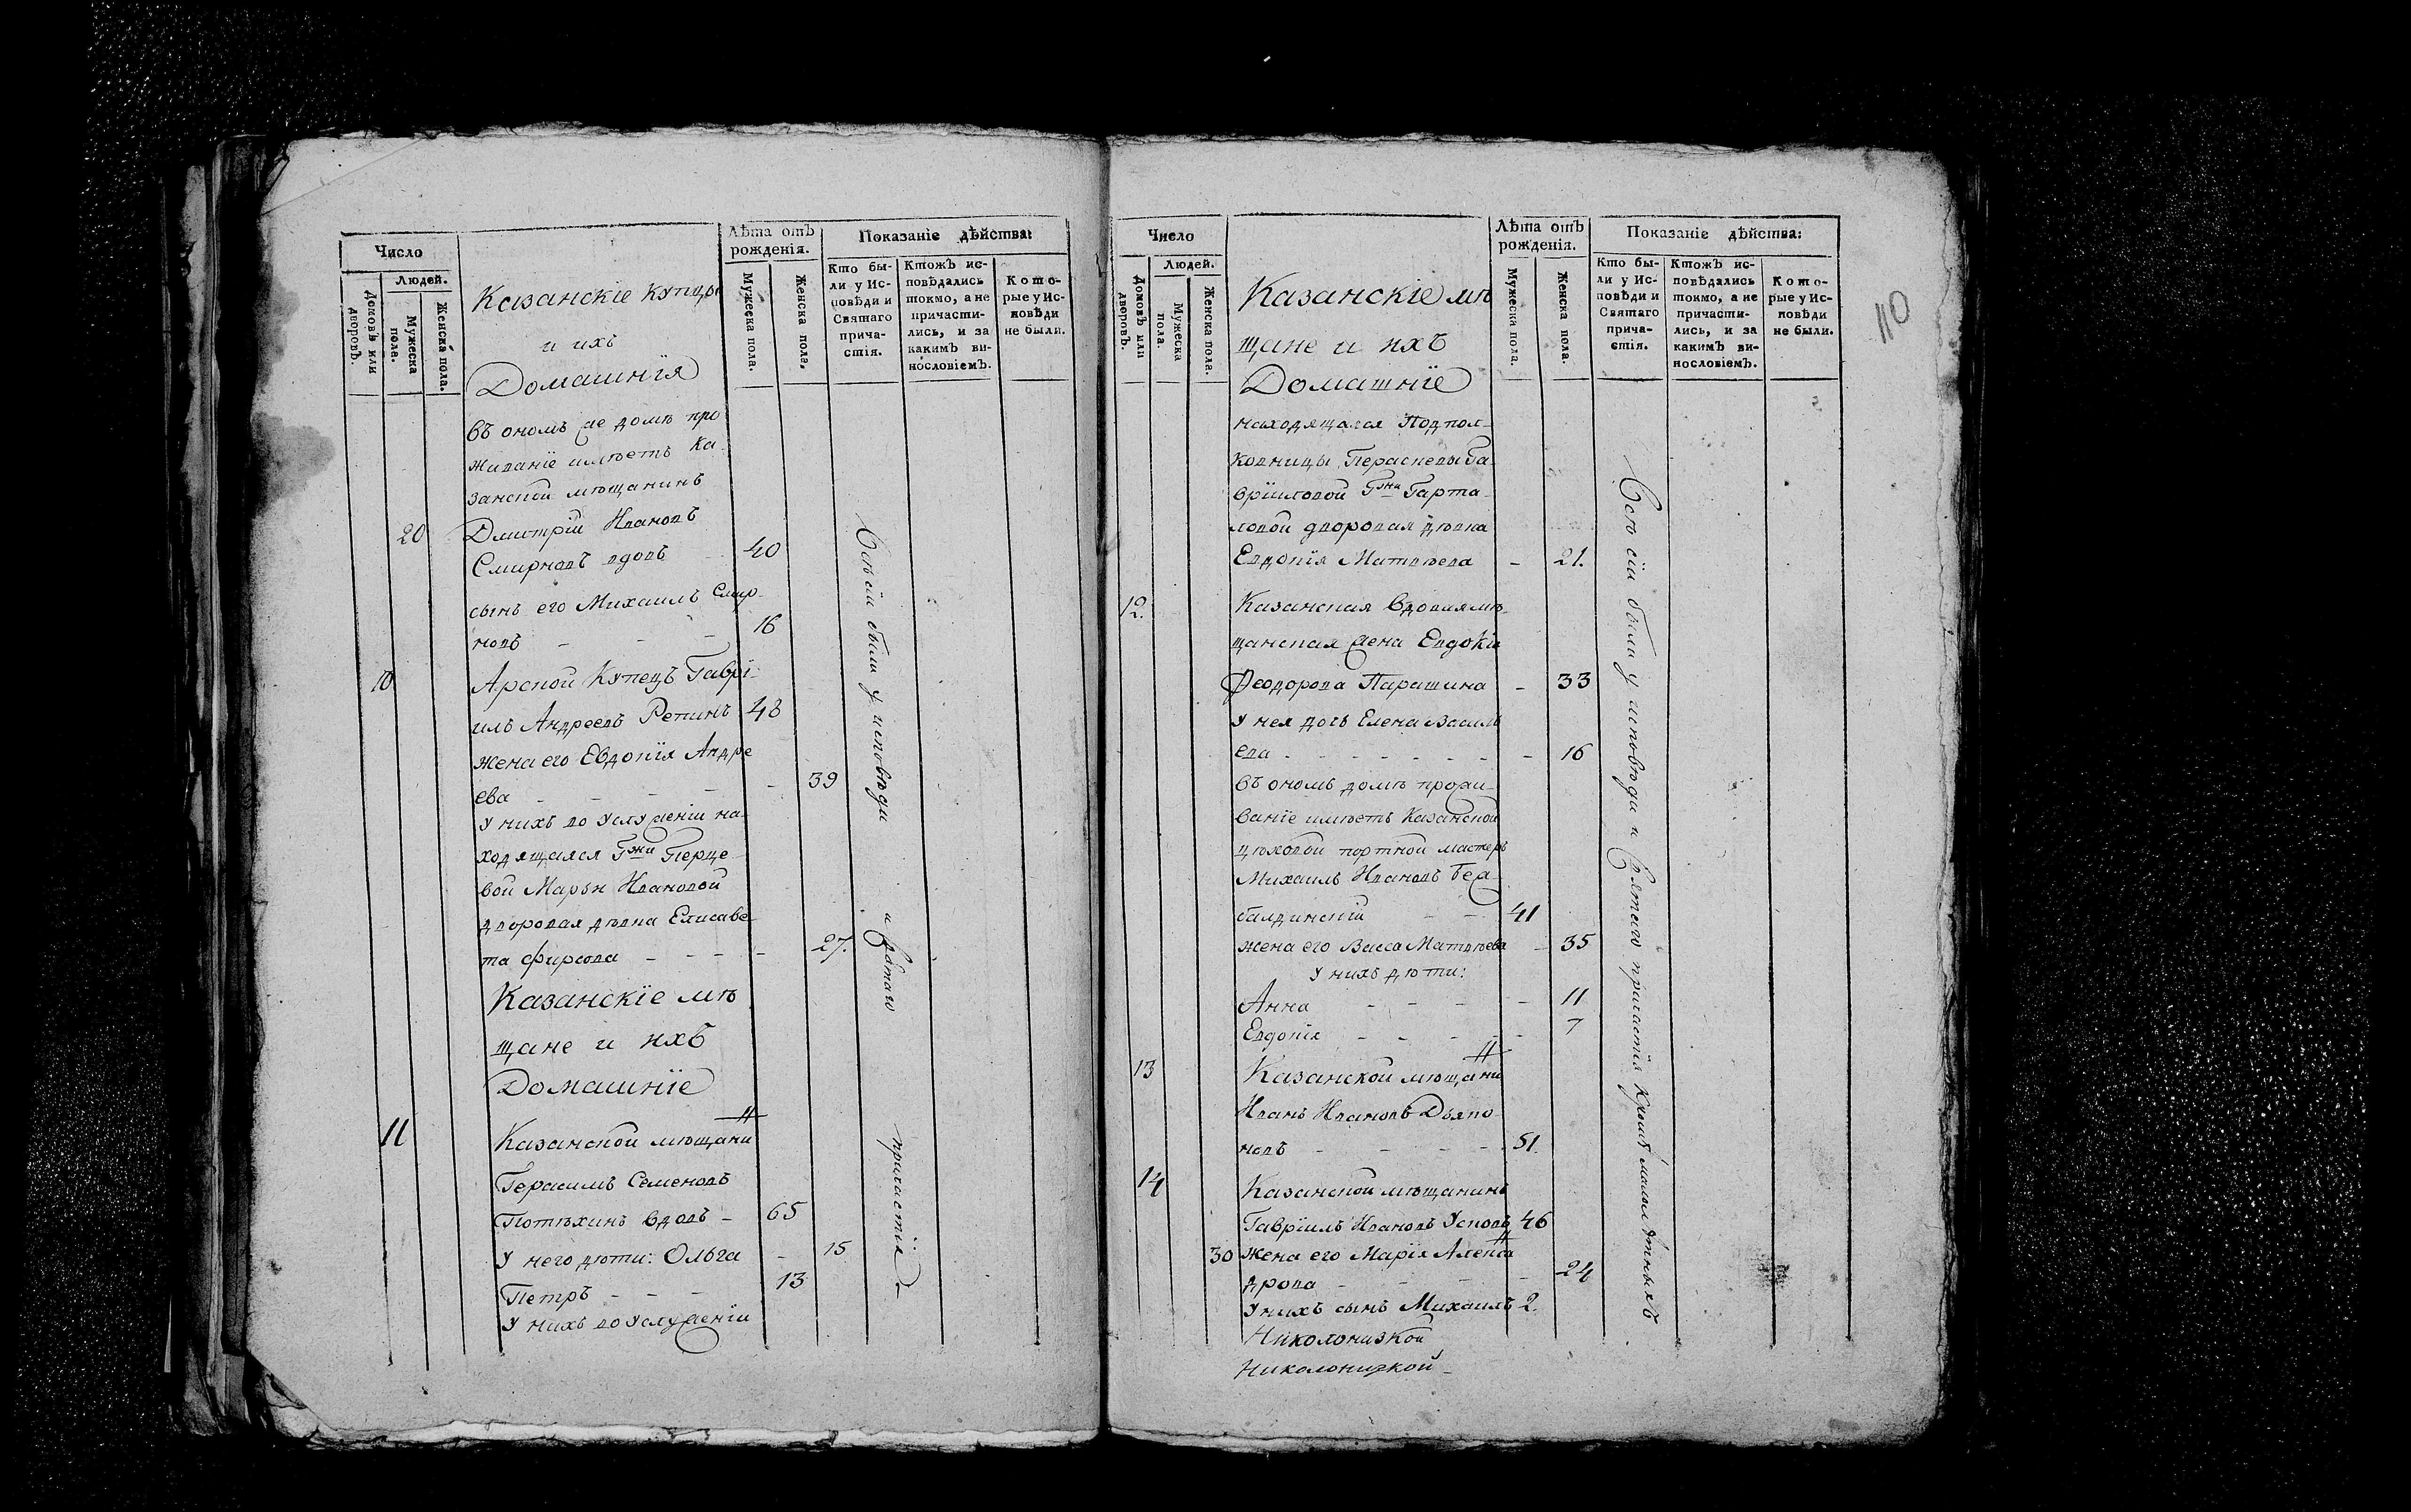 Число
Людей.
Домовъ или дворовъ.
Мужеска пола.
Женска пола.
Казанскіе купцы
и ихъ
Домашнія
Лѣта отъ
рожденія.
Мужеска пола.
Женска пола.
Показаніе дѣйства:
Кто бы-
ли у Ис-
повѣди и
Святаго
прича-
стія.
Ктожъ ис-
повѣдались
токмо, а не
причасти-
лись, и за
какимъ ви-
нословіемъ.
Кото-
рые у Ис-
повѣди
не были.
въ ономъ же домѣ про
живаніе имѣетъ Ка-
занской мѣщанинъ
20 Дмитрій Ивановъ
Смирновъ вдовъ 40
сынъ его Михаилъ Смир-
новъ - - - 16
10 Арской Купецъ Гаврі-
илъ Андреевъ Репинъ 48
жена его Евдокія Андре
ева - - - - - 39
У нихъ во услуженіи на-
ходящаяся Гжи Перце-
вой Марьи Ивановой
дворовая дѣвка Елисаве-
та Фирсова - - - - 27.
Казанскіе мѣ
щане и ихъ
Домашніе
11 Казанской мѣщани
Герасимъ Семеновъ
Потѣхинъ вдовъ - 65
У него дѣти: Ольга - 15
Петръ - - - 13
У нихъ во услуженіи
Всѣ сіи были у исповѣди и Святаго причастія
110
Число
Людей.
Домовъ или дворовъ.
Мужеска пола.
Женска пола.
Казанскіе мѣ
щане и ихъ
Домашніе
Лѣта отъ
рожденія.
Мужеска пола.
Женска пола.
Показаніе дѣйства:
Кто бы-
ли у Ис-
повѣди и
Святаго
прича-
стія.
Ктожъ ис-
повѣдались
токмо, а не
причасти-
лись, и за
какимъ ви-
нословіемъ.
Кото-
рые у Ис-
повѣди
не были.
находящаяся Подпол-
ковницы Га-
вріиловой Гжи
ловой дворовая дѣвка
Евдокія Матвѣева - 21.
12. Казанская вдовая мѣ-
щанская жена Евдокія
Феодорова Парашина - 33
У нея дочь Елена Василь
ева - - - - - - - - 16
въ ономъ домѣ прожи-
ваніе имѣетъ Казанской
цѣховой портной мастеръ
Михаилъ Ивановъ
- - 41
жена его Васса Матвѣева - 35
У нихъ дѣти:
Анна - - - - 11
Евдокія - - - - - 7
13 Казанской мѣщани
Иванъ Ивановъ Дьяко-
новъ - - - - - 51.
14 Казанской мѣщанинъ
Гавріилъ Ивановъ Усковъ 46
30 жена его Марія Алекса
дрова - - - - 24
У нихъ сынъ Михаилъ 2.
Николонизкой
Николонизкой
Всѣ сіи были у исповѣди и Святаго причастія кромѣ малолѣтныхъ